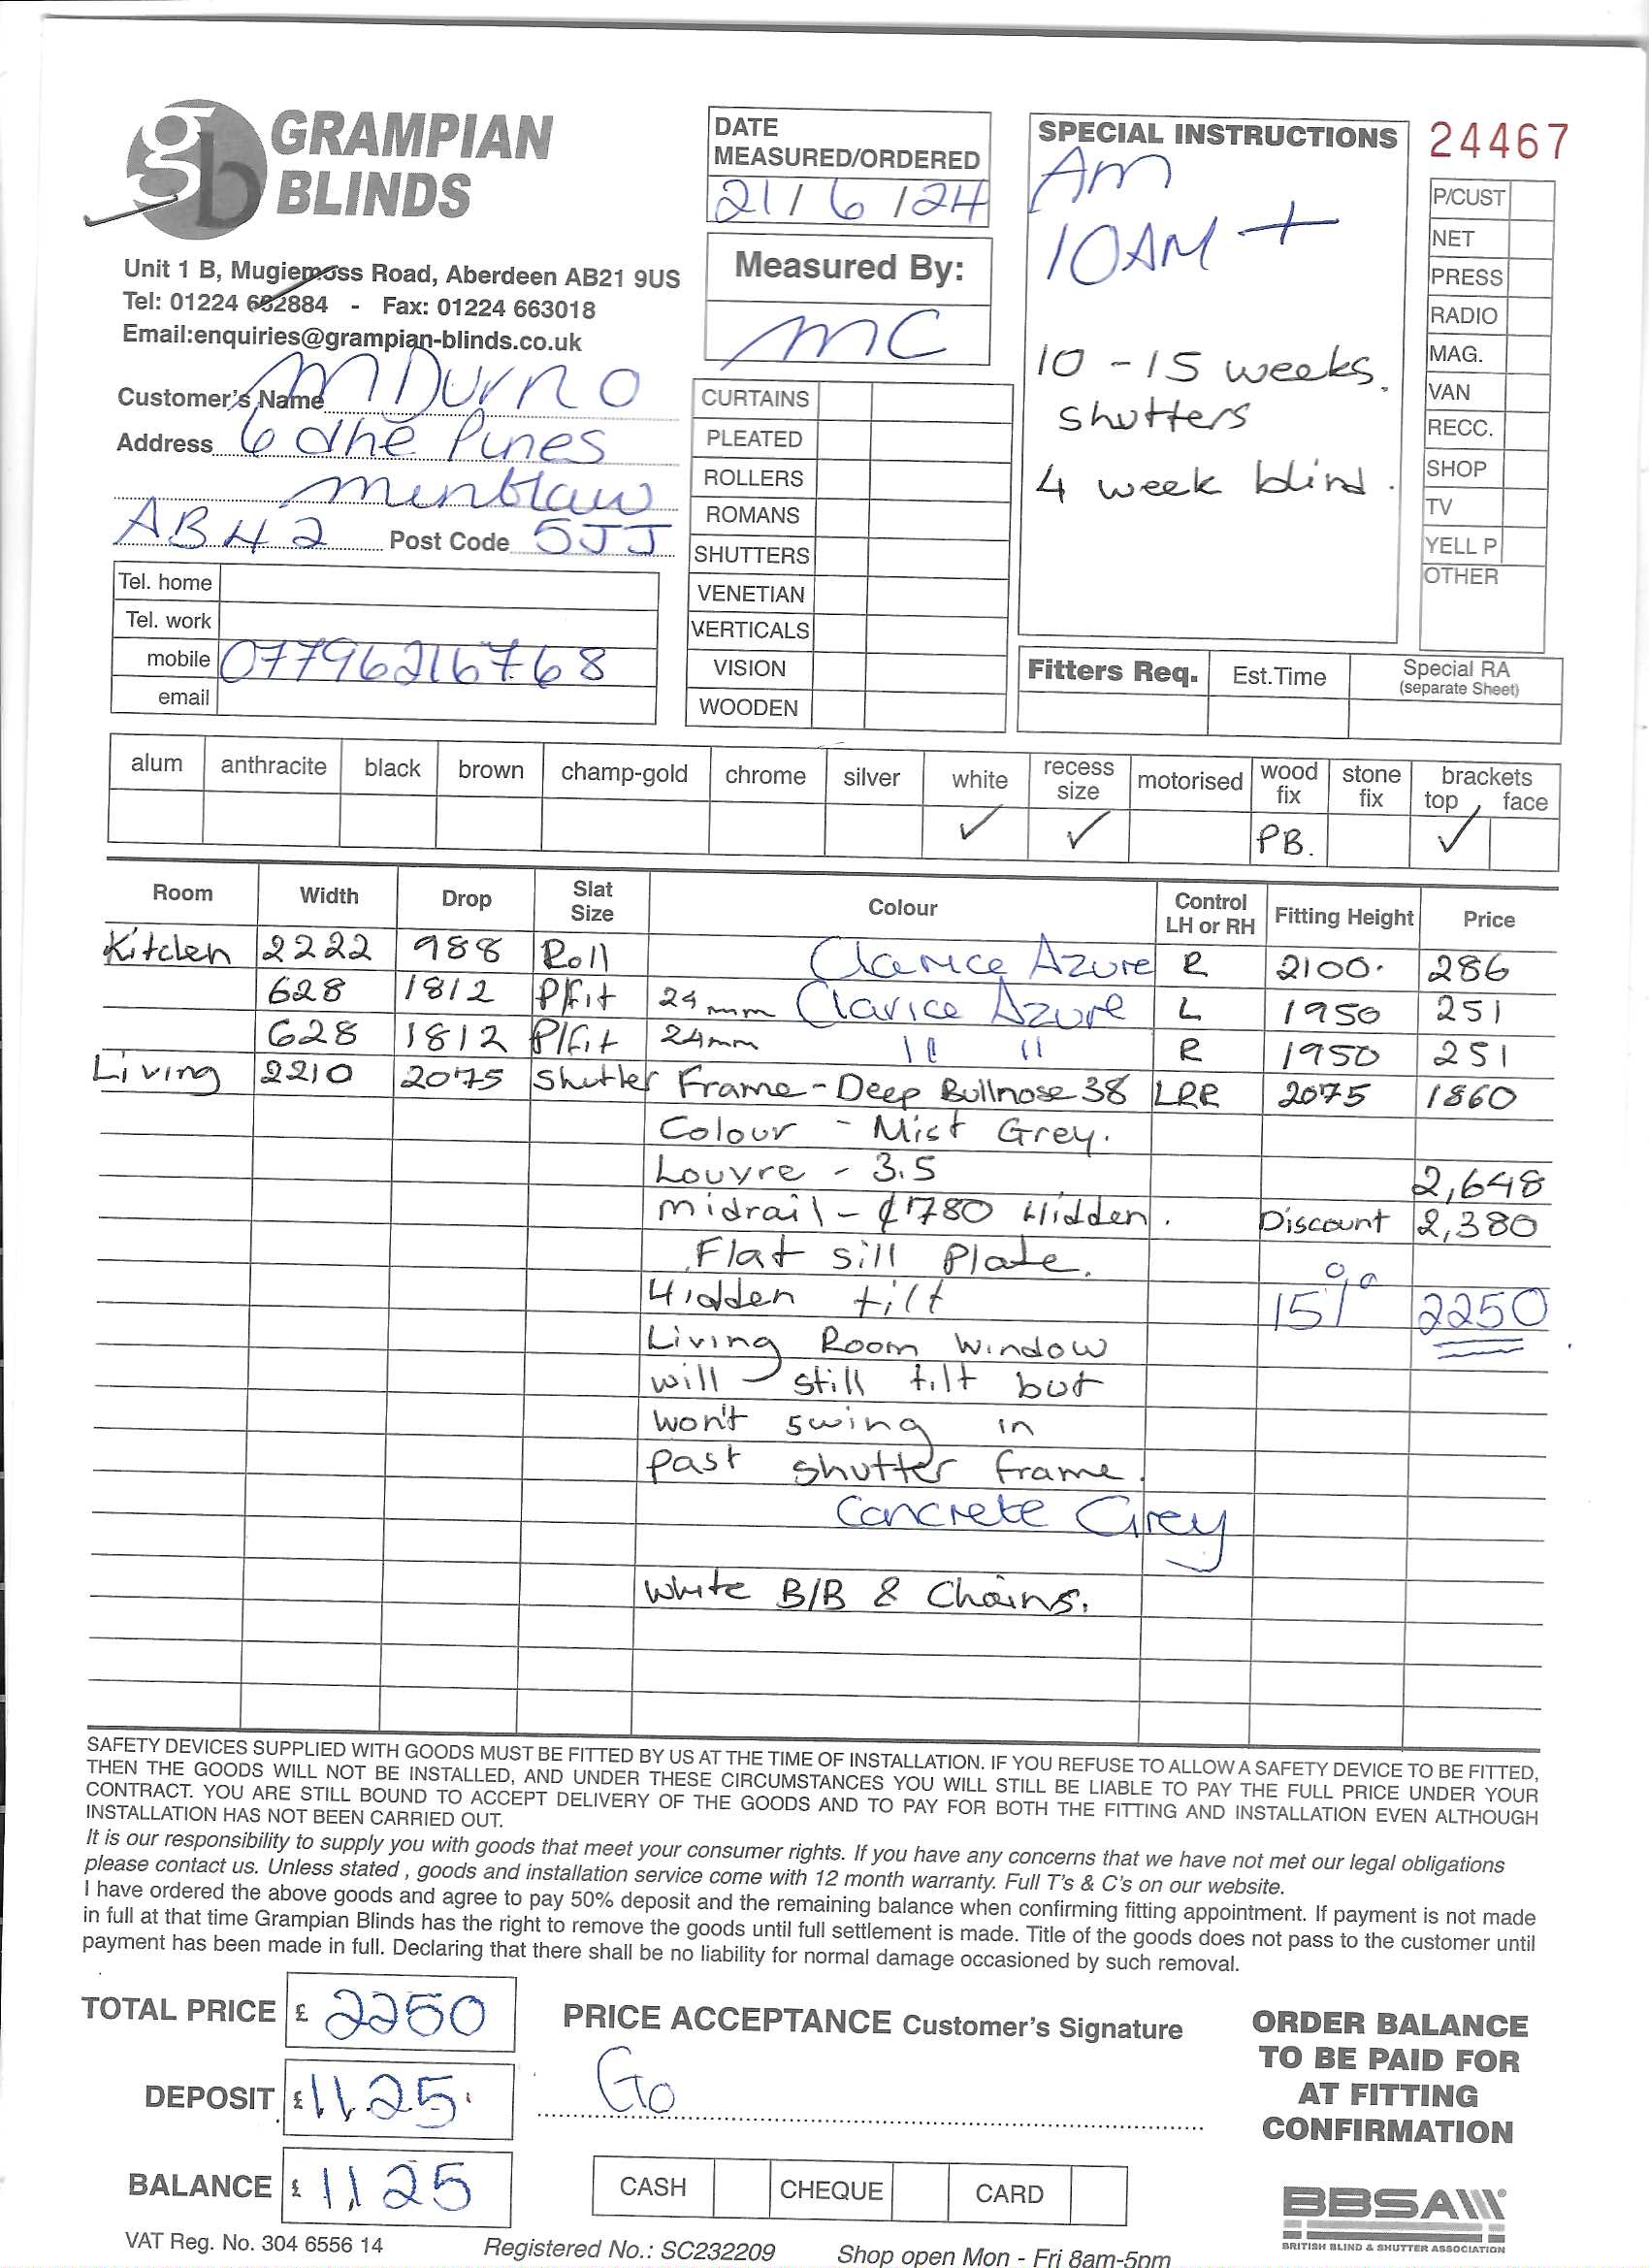 gb GRAMPIAN
BLINDS
Unit 1 B, Mugiemoss Road, Aberdeen AB21 9US
Tel: 01224 682884 - Fax: 01224 663018
Email:enquiries@grampian-blinds.co.uk
Customer's Name M Durno
Address 6 The Pines
Mintlaw
AB42 Post Code 5JJ
Tel. home
Tel. work
mobile 07796216768
email
DATE
MEASURED/ORDERED
21/6/24
Measured By:
MC
CURTAINS
PLEATED
ROLLERS
ROMANS
SHUTTERS
VENETIAN
VERTICALS
VISION
WOODEN
SPECIAL INSTRUCTIONS
AM
10AM +
10 - 15 weeks.
shutters
4 week blind.
24467
P/CUST
NET
PRESS
RADIO
MAG.
VAN
RECC.
SHOP
TV
YELL P
OTHER
Fitters Req. Est.Time Special RA
(separate Sheet)
alum anthracite black brown champ-gold chrome silver white recess size motorised wood fix stone fix brackets top face
✓ ✓ PB. ✓
Room Width Drop Slat Size Colour Control LH or RH Fitting Height Price
Kitchen 2222 988 Roll Clarice Azure R 2100. 286
628 1812 P/Fit 24mm Clarice Azure L 1950 251
628 1812 P/Fit 24mm " " R 1950 251
Living 2210 2075 Shutter Frame - Deep Bullnose 38 LRR 2075 1860
Colour - Mist Grey.
Louvre - 3.5 2,648
Midrail - ₵1780 Hidden. Discount 2,380
Flat sill Plate.
Hidden tilt 15% 2250
Living Room Window
will still tilt but
won't swing in
past shutter frame.
Concrete Grey
White B/B & Chains.
SAFETY DEVICES SUPPLIED WITH GOODS MUST BE FITTED BY US AT THE TIME OF INSTALLATION. IF YOU REFUSE TO ALLOW A SAFETY DEVICE TO BE FITTED,
THEN THE GOODS WILL NOT BE INSTALLED, AND UNDER THESE CIRCUMSTANCES YOU WILL STILL BE LIABLE TO PAY THE FULL PRICE UNDER YOUR
CONTRACT. YOU ARE STILL BOUND TO ACCEPT DELIVERY OF THE GOODS AND TO PAY FOR BOTH THE FITTING AND INSTALLATION EVEN ALTHOUGH
INSTALLATION HAS NOT BEEN CARRIED OUT.
It is our responsibility to supply you with goods that meet your consumer rights. If you have any concerns that we have not met our legal obligations
please contact us. Unless stated , goods and installation service come with 12 month warranty. Full T's & C's on our website.
I have ordered the above goods and agree to pay 50% deposit and the remaining balance when confirming fitting appointment. If payment is not made
in full at that time Grampian Blinds has the right to remove the goods until full settlement is made. Title of the goods does not pass to the customer until
payment has been made in full. Declaring that there shall be no liability for normal damage occasioned by such removal.
TOTAL PRICE £ 2250
DEPOSIT £ 1125.
BALANCE £ 1,125
PRICE ACCEPTANCE Customer's Signature
Go
CASH CHEQUE CARD
ORDER BALANCE
TO BE PAID FOR
AT FITTING
CONFIRMATION
BBSA
BRITISH BLIND & SHUTTER ASSOCIATION
VAT Reg. No. 304 6556 14 Registered No.: SC232209 Shop open Mon - Fri 8am-5pm